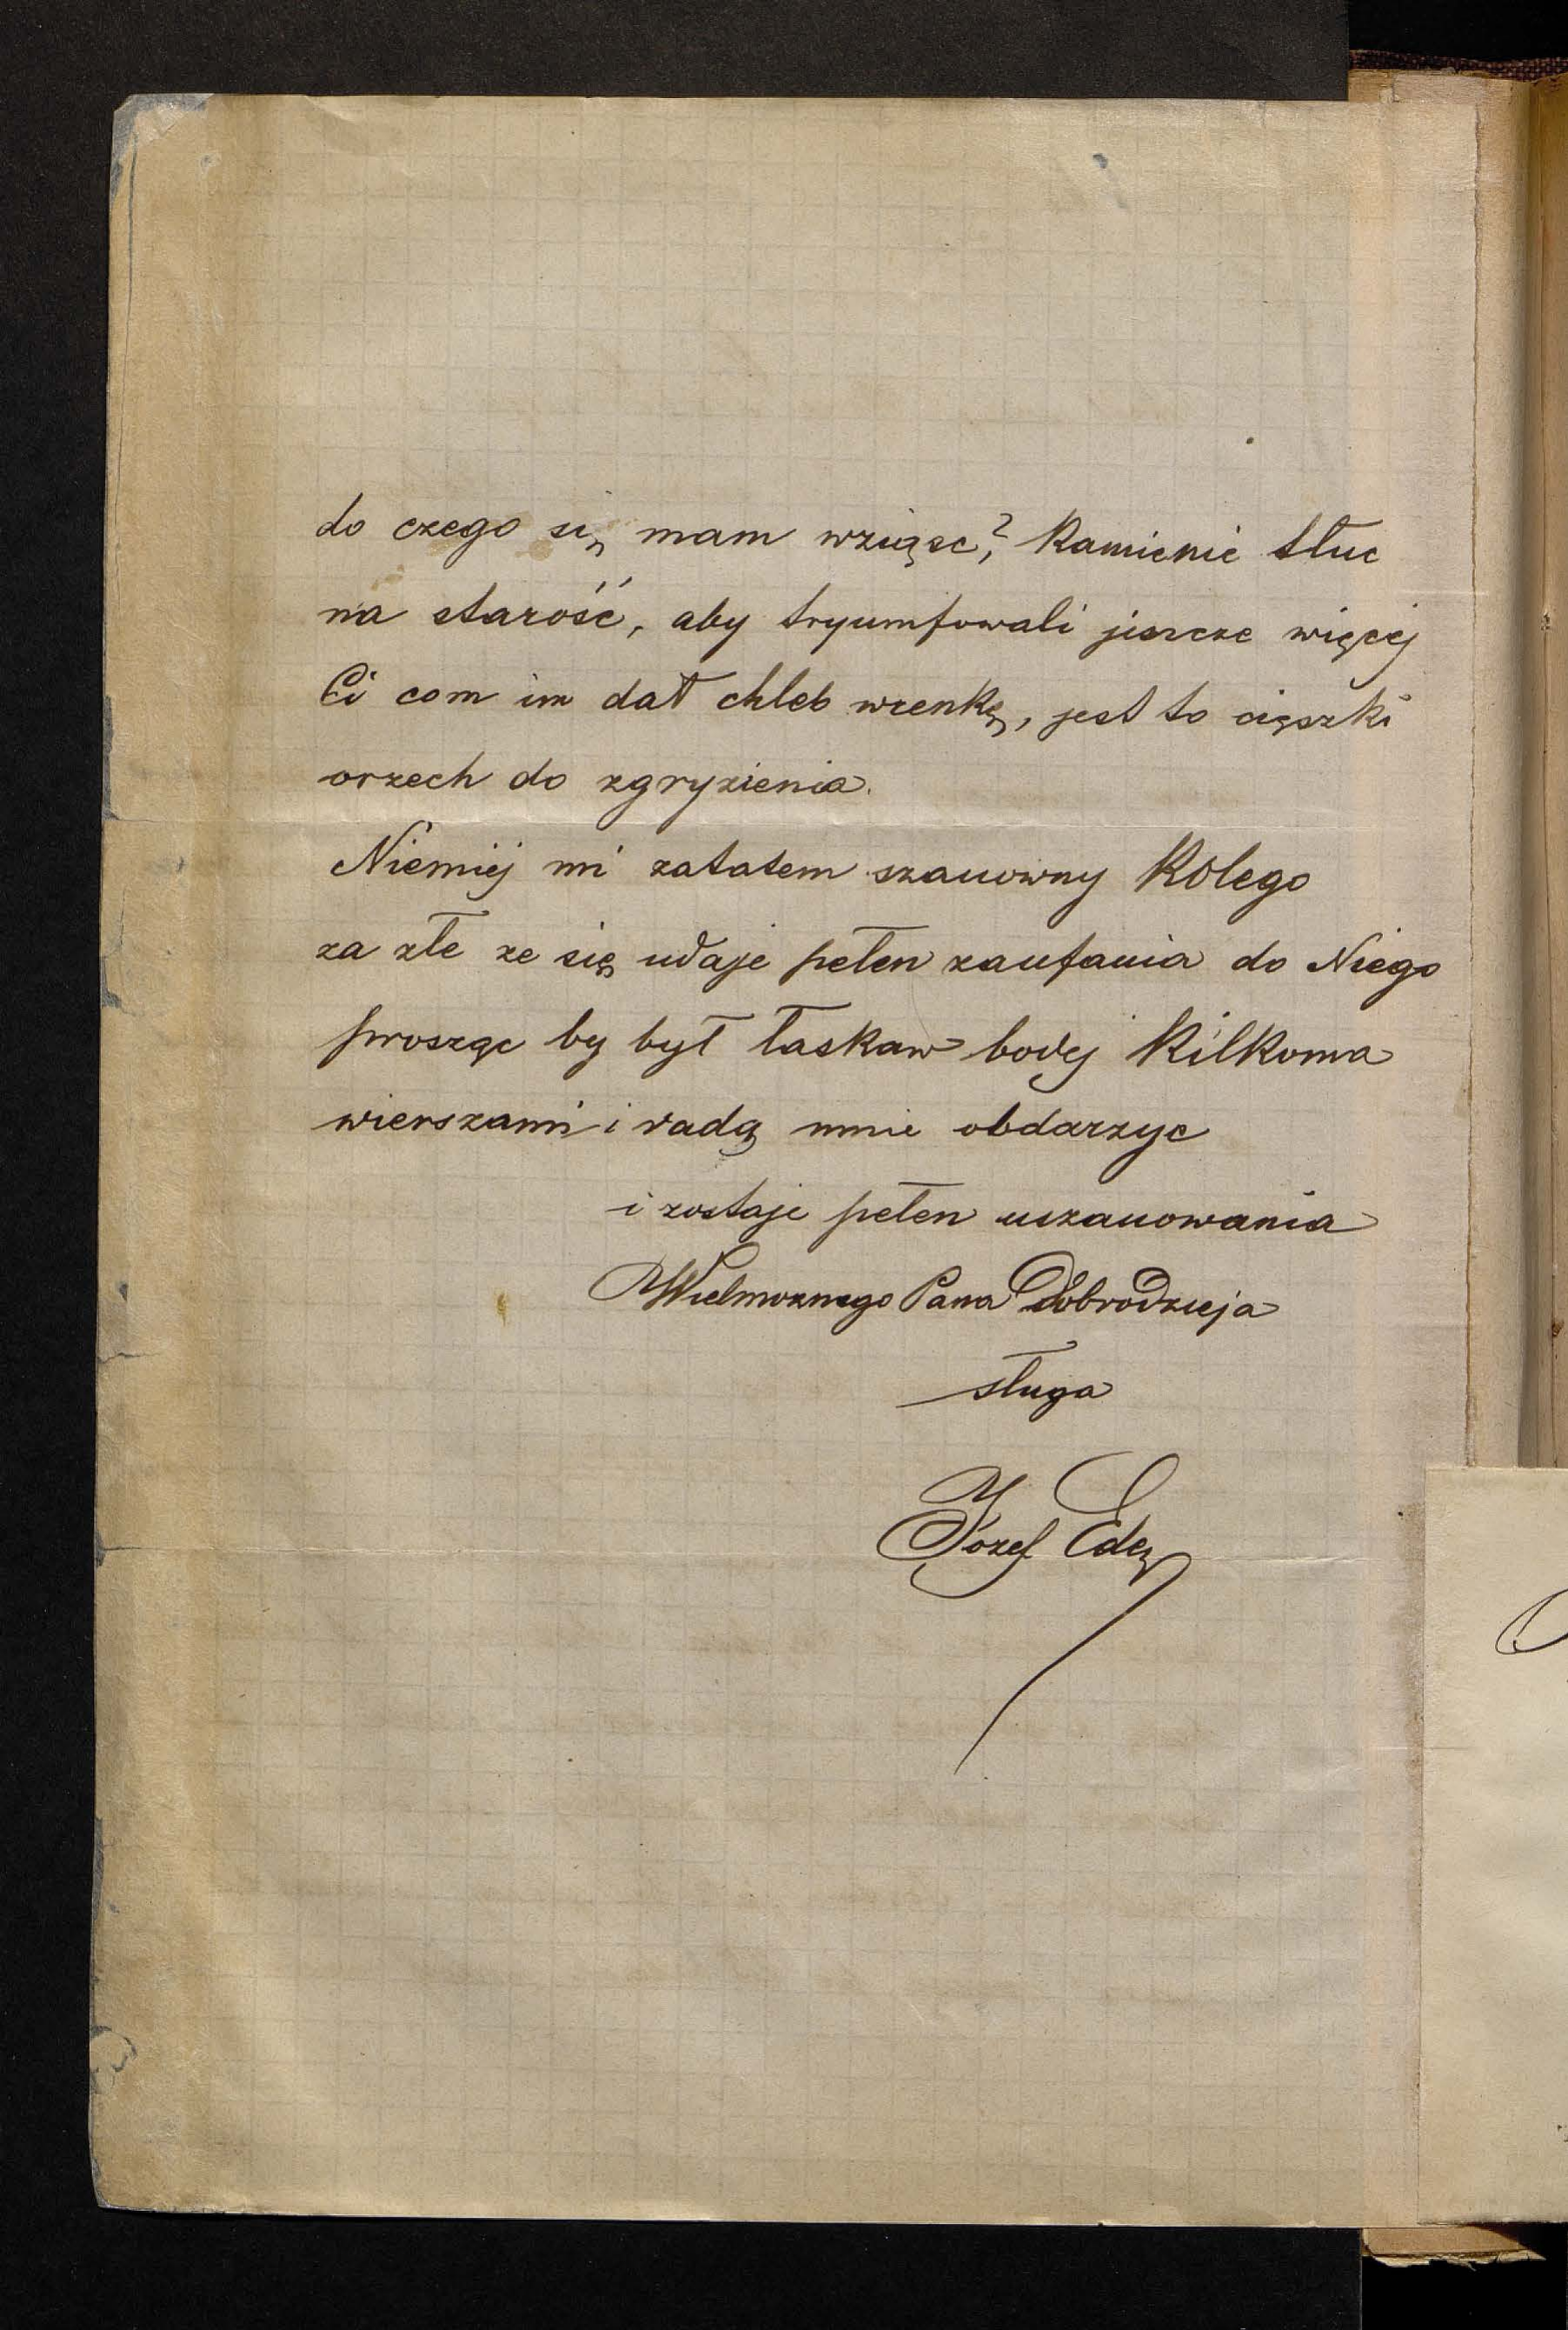 do czego się mam wziąsc? Kamienie tłuc
na starość, aby tryumfowali jeszcze więcej
Ci com im dał chleb wrenkę, jest to cięszki
orzech do zgryzienia.
Niemiej mi zatatem szanowny Kolego
za złe ze się udaje pełen zaufania do Niego
prosząc by był łaskaw bodej kilkoma
wierszami i radą mnie obdarzyc
i zostaje pełen uszanowania
Wielmoznego Pana Dobrodzieja
sługa
Józef Edę